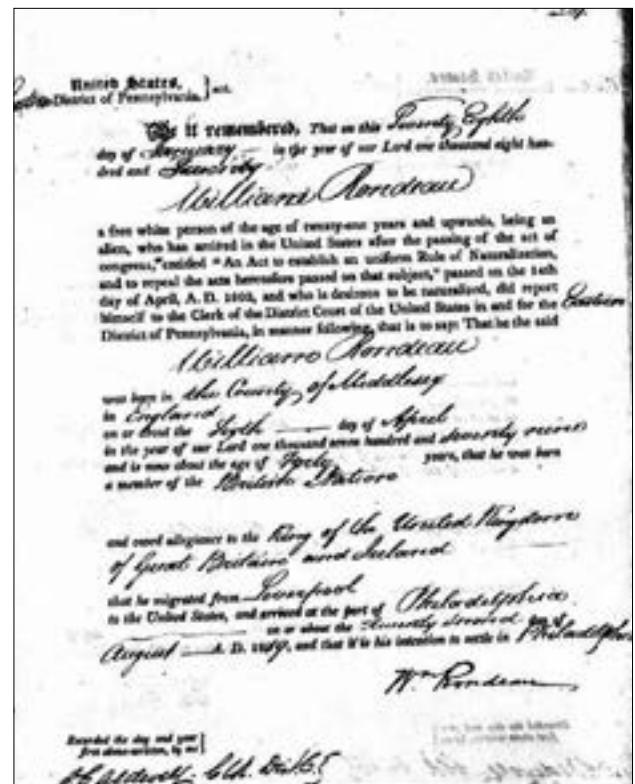 United States,
Eastern District of Pennsylvania. } sct.
Be it remembered, That on this Twenty Eighth
day of January in the year of our Lord one thousand eight hun-
dred and twenty
William Rondeau
a free white person of the age of twenty-one years and upwards, being an
alien, who has arrived in the United States after the passing of the act of
congress, entitled "An Act to establish an uniform Rule of Naturalization,
and to repeal the acts heretofore passed on that subject," passed on the 14th
day of April, A. D. 1802, and who is desirous to be naturalized, did report
himself to the Clerk of the District Court of the United States in and for the Eastern
District of Pennsylvania, in manner following, that is to say: That he the said
William Rondeau
was born in the County of Middlesex
in England
on or about the day of April
in the year of our Lord one thousand seven hundred and seventy nine
and is now about the age of years, that he was born
a member of the British Nation
and owed allegiance to the King of the United Kingdom
of Great Britain and Ireland
that he migrated from Liverpool
to the United States, and arrived at the port of Philadelphia
on or about the Twenty second day of
August A. D. 1819, and that it is his intention to settle in Philadelphia
Wm Rondeau
Recorded the day and year
first above-written, by me }
D Caldwell Clk. Dist. Ct